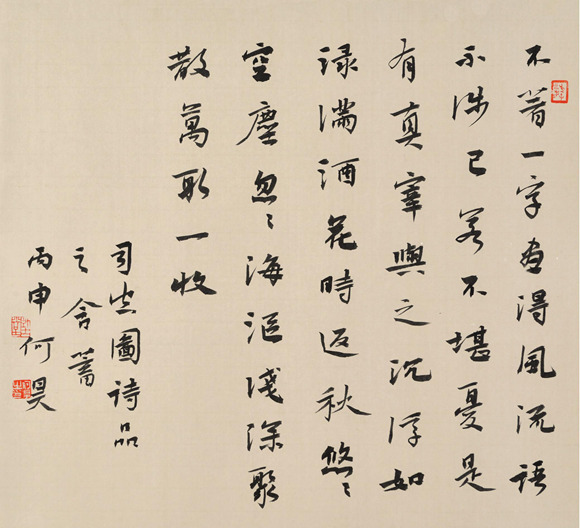 不着一字盡得風流語
不涉已若不堪憂是
有真宰與之沉浮如
淥滿酒花時返秋悠〻
空塵忽〻海漚淺深聚
散萬取一收
司空圖詩品
之含蓄
丙申何昊